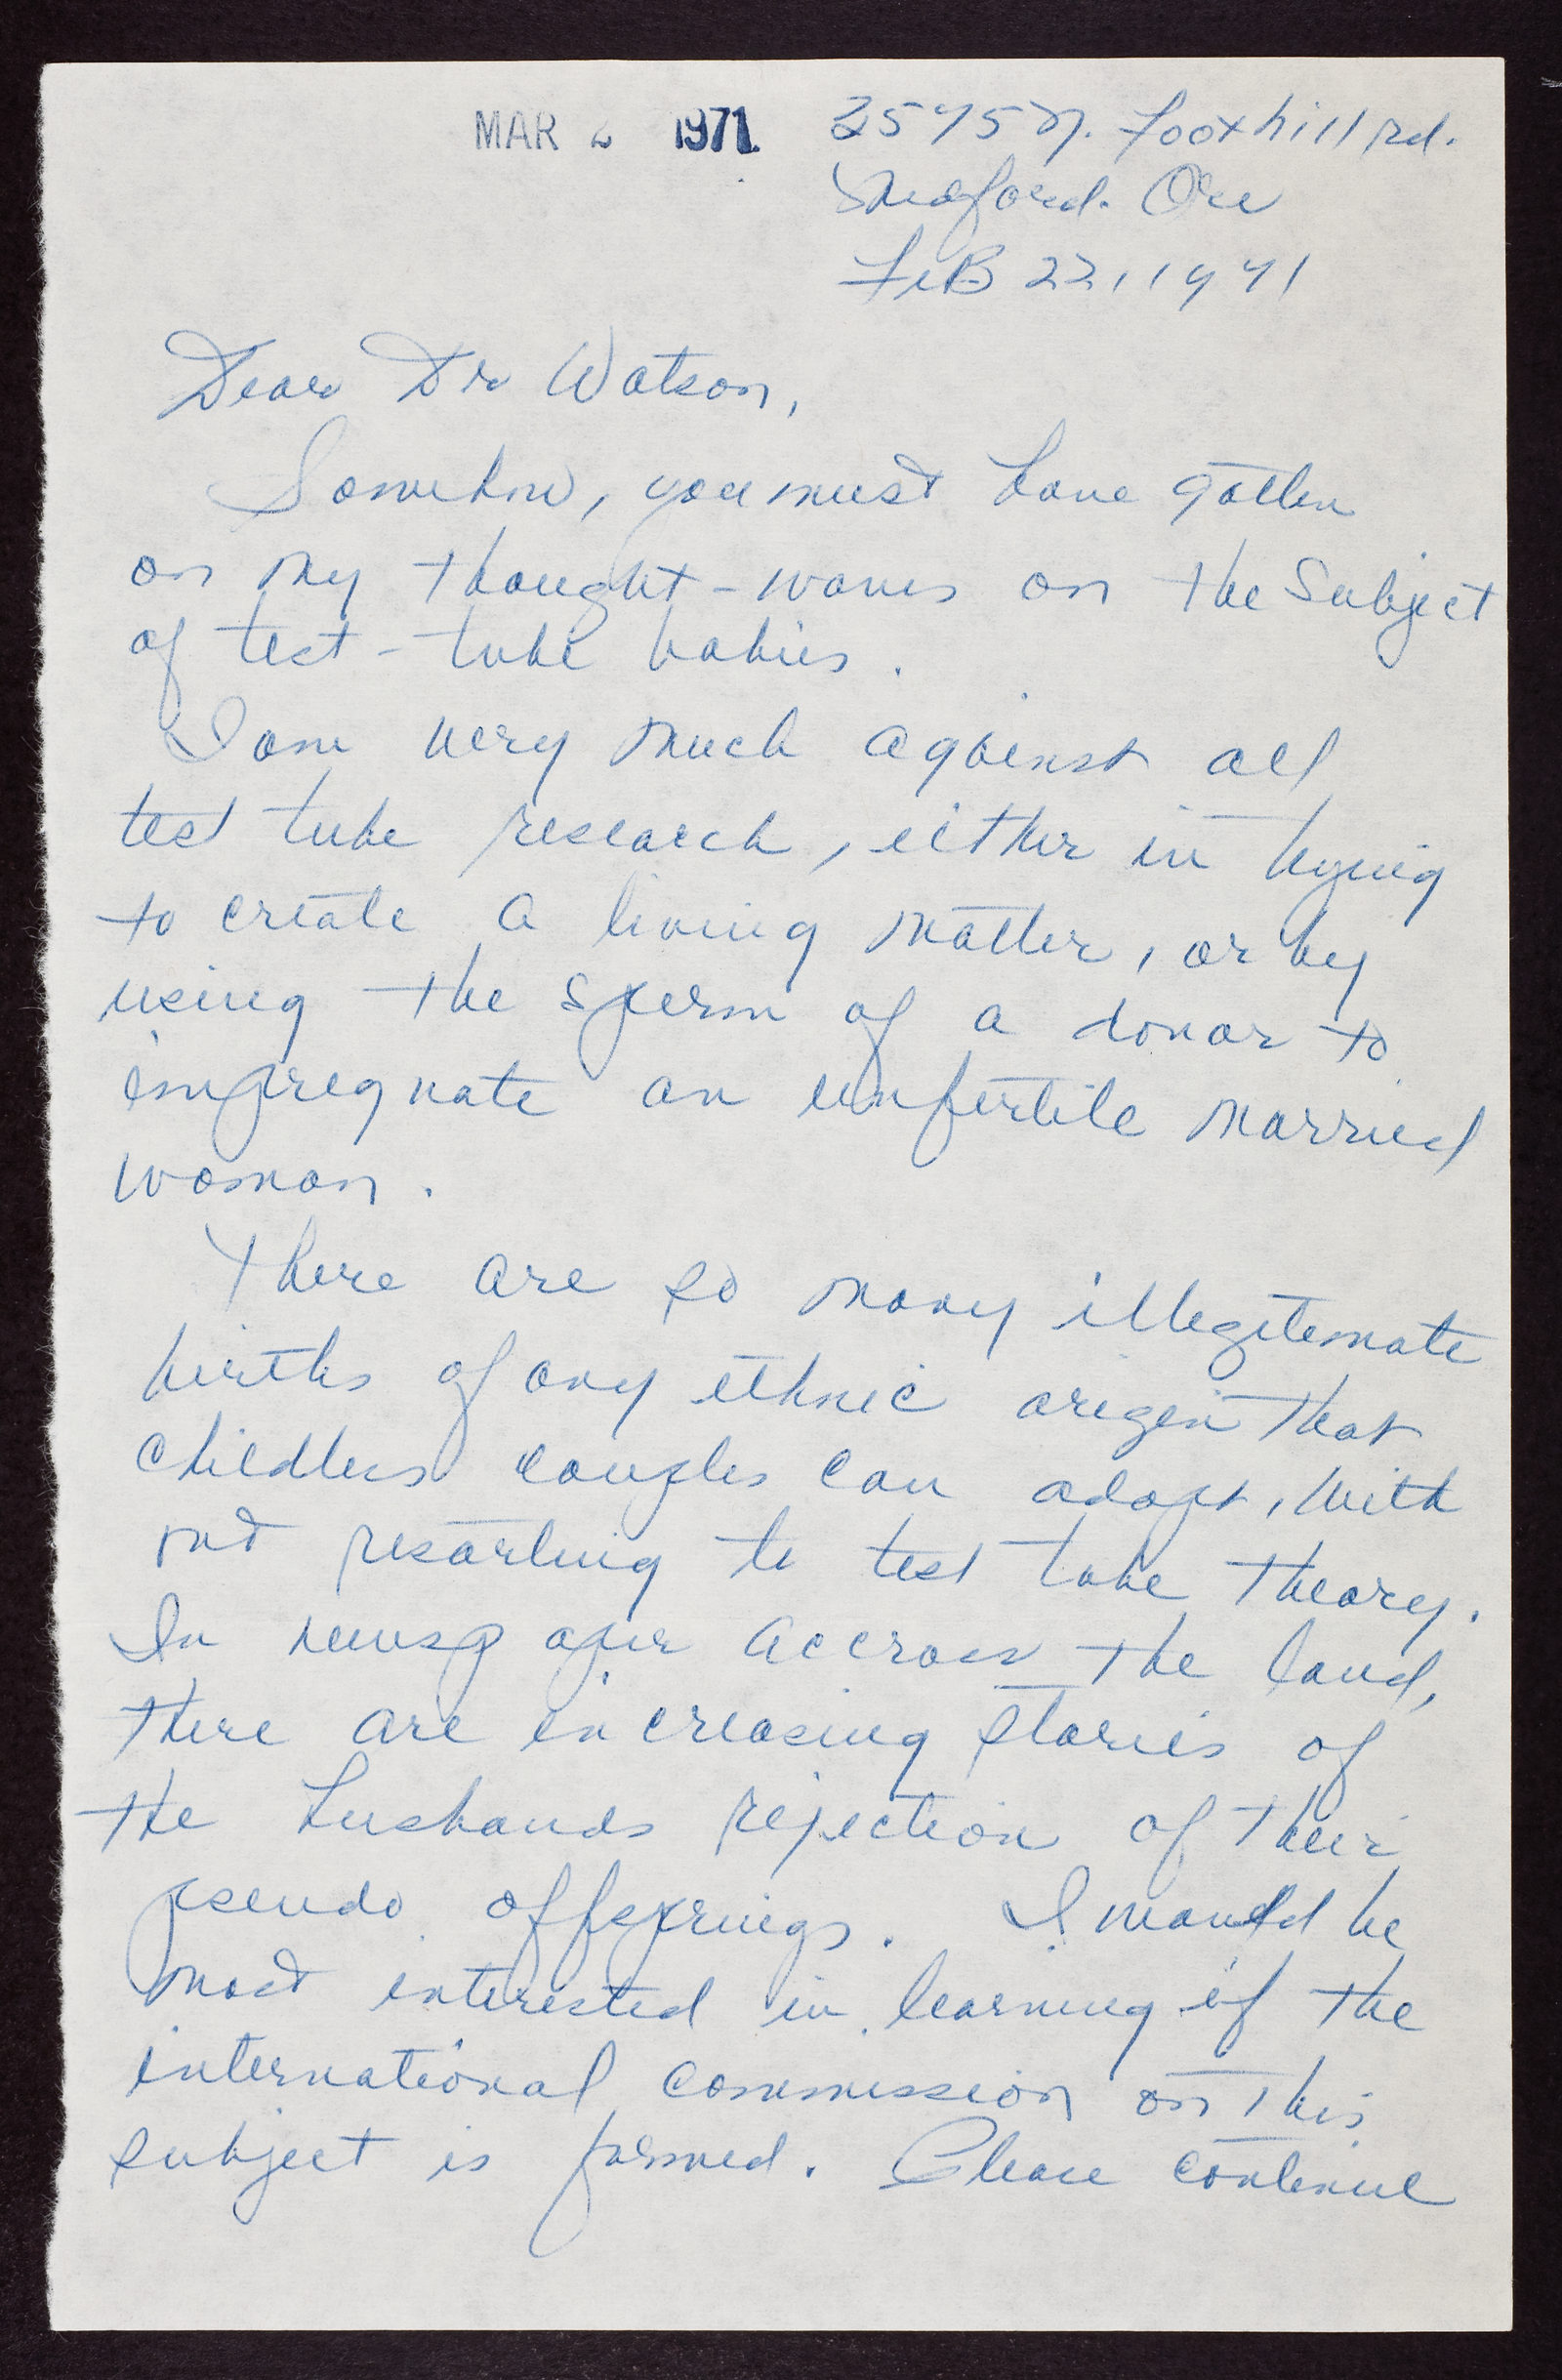 MAR 2 1971
3575 N. Foothill Rd.
Medford. Ore
FeB 22, 1971
Dear Dr Watson,
Somehow, you must have gotten
on my thought-waves on the Subject
of test-tube babies.
I am very much against all
test tube research, either in trying
to create a living matter, or by
using the sperm of a donor to
impregnate an unfertile married
woman.
There are so many illegitemate
births of any ethnic origin that
childless couples can adopt, with
out resorting to test tube theory.
In newspaper accross the land,
there are increasing stories of
the husbands rejection of their
pseudo offsprings. I would be
most interested in learning if the
international commission on this
subject is formed. Please continue